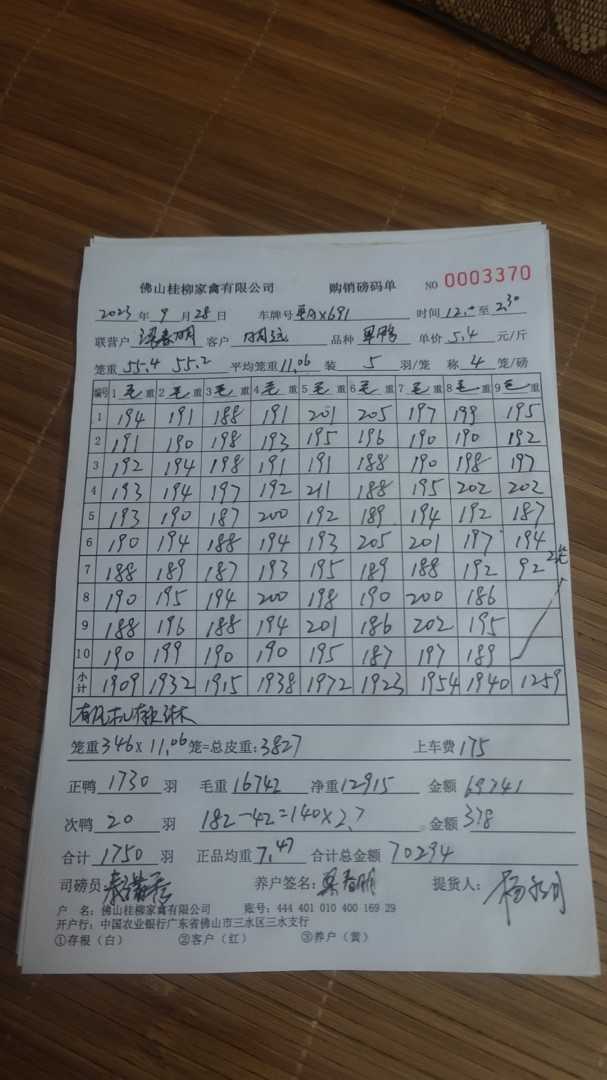 佛山桂柳家禽有限公司 购销磅码单 NO 0003370
2023年9月28日 车牌号 X691 时间12.0至2.30
联营户 客户 明远 品种 单价5.4元/斤
笼重55.4 55.2 平均笼重11.06 装5羽/笼 称4笼/磅
编号 1毛重 2毛重 3毛重 4毛重 5毛重 6毛重 7毛重 8毛重 9毛重
1 194 191 188 191 201 205 197 199 195
2 191 190 198 193 195 196 190 190 192
3 192 194 198 191 191 188 190 198 197
4 193 194 197 192 211 188 195 202 202
5 193 190 187 200 192 189 194 192 187
6 190 194 188 194 193 205 201 197 194
7 188 189 187 193 195 189 188 192 92 2笼
8 190 195 194 200 198 190 200 186
9 188 196 188 194 201 186 202 195
10 190 199 190 190 195 187 197 189
小计 1909 1932 1915 1938 1972 1923 1954 1940 1259
笼重346×11.06笼=总皮重:3827 上车费175
正鸭1730羽 毛重16742 净重12915 金额69741
次鸭20羽 182-42=140×2.7 金额378
合计1750羽 正品均重7.47 合计总金额70294
司磅员 养户签名: 提货人:
户 名:佛山桂柳家禽有限公司 账号:444 401 010 400 169 29
开户行:中国农业银行广东省佛山市三水区三水支行
①存根(白) ②客户(红) ③养户(黄)